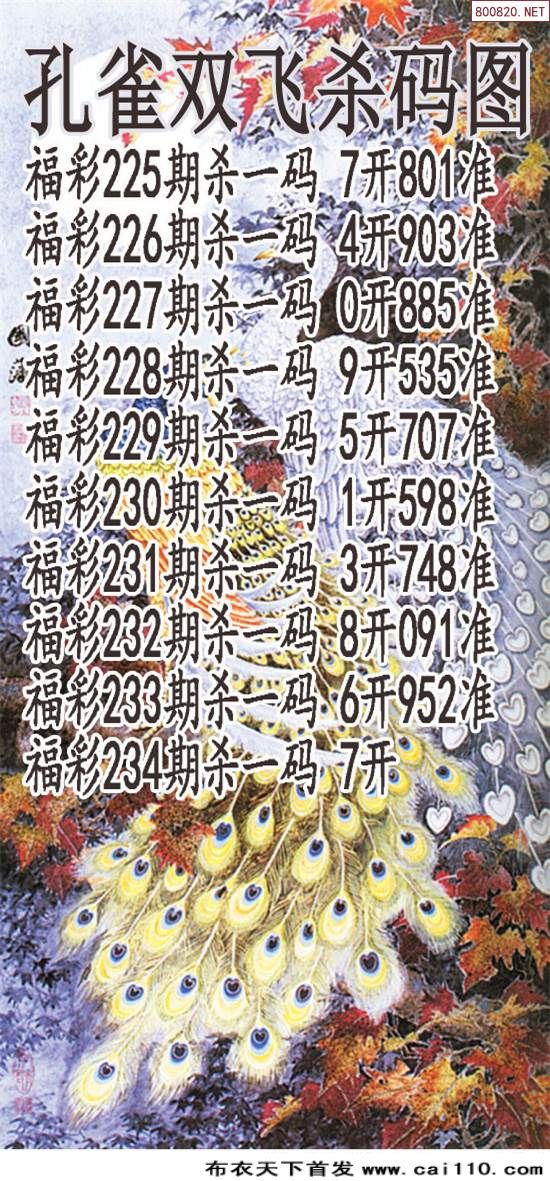 800820.NET
孔雀双飞杀码图
福彩225期杀一码 7开801准
福彩226期杀一码 4开903准
福彩227期杀一码 0开885准
福彩228期杀一码 9开535准
福彩229期杀一码 5开707准
福彩230期杀一码 1开598准
福彩231期杀一码 3开748准
福彩232期杀一码 8开091准
福彩233期杀一码 6开952准
福彩234期杀一码 7开
布衣天下首发 www.cai110.com